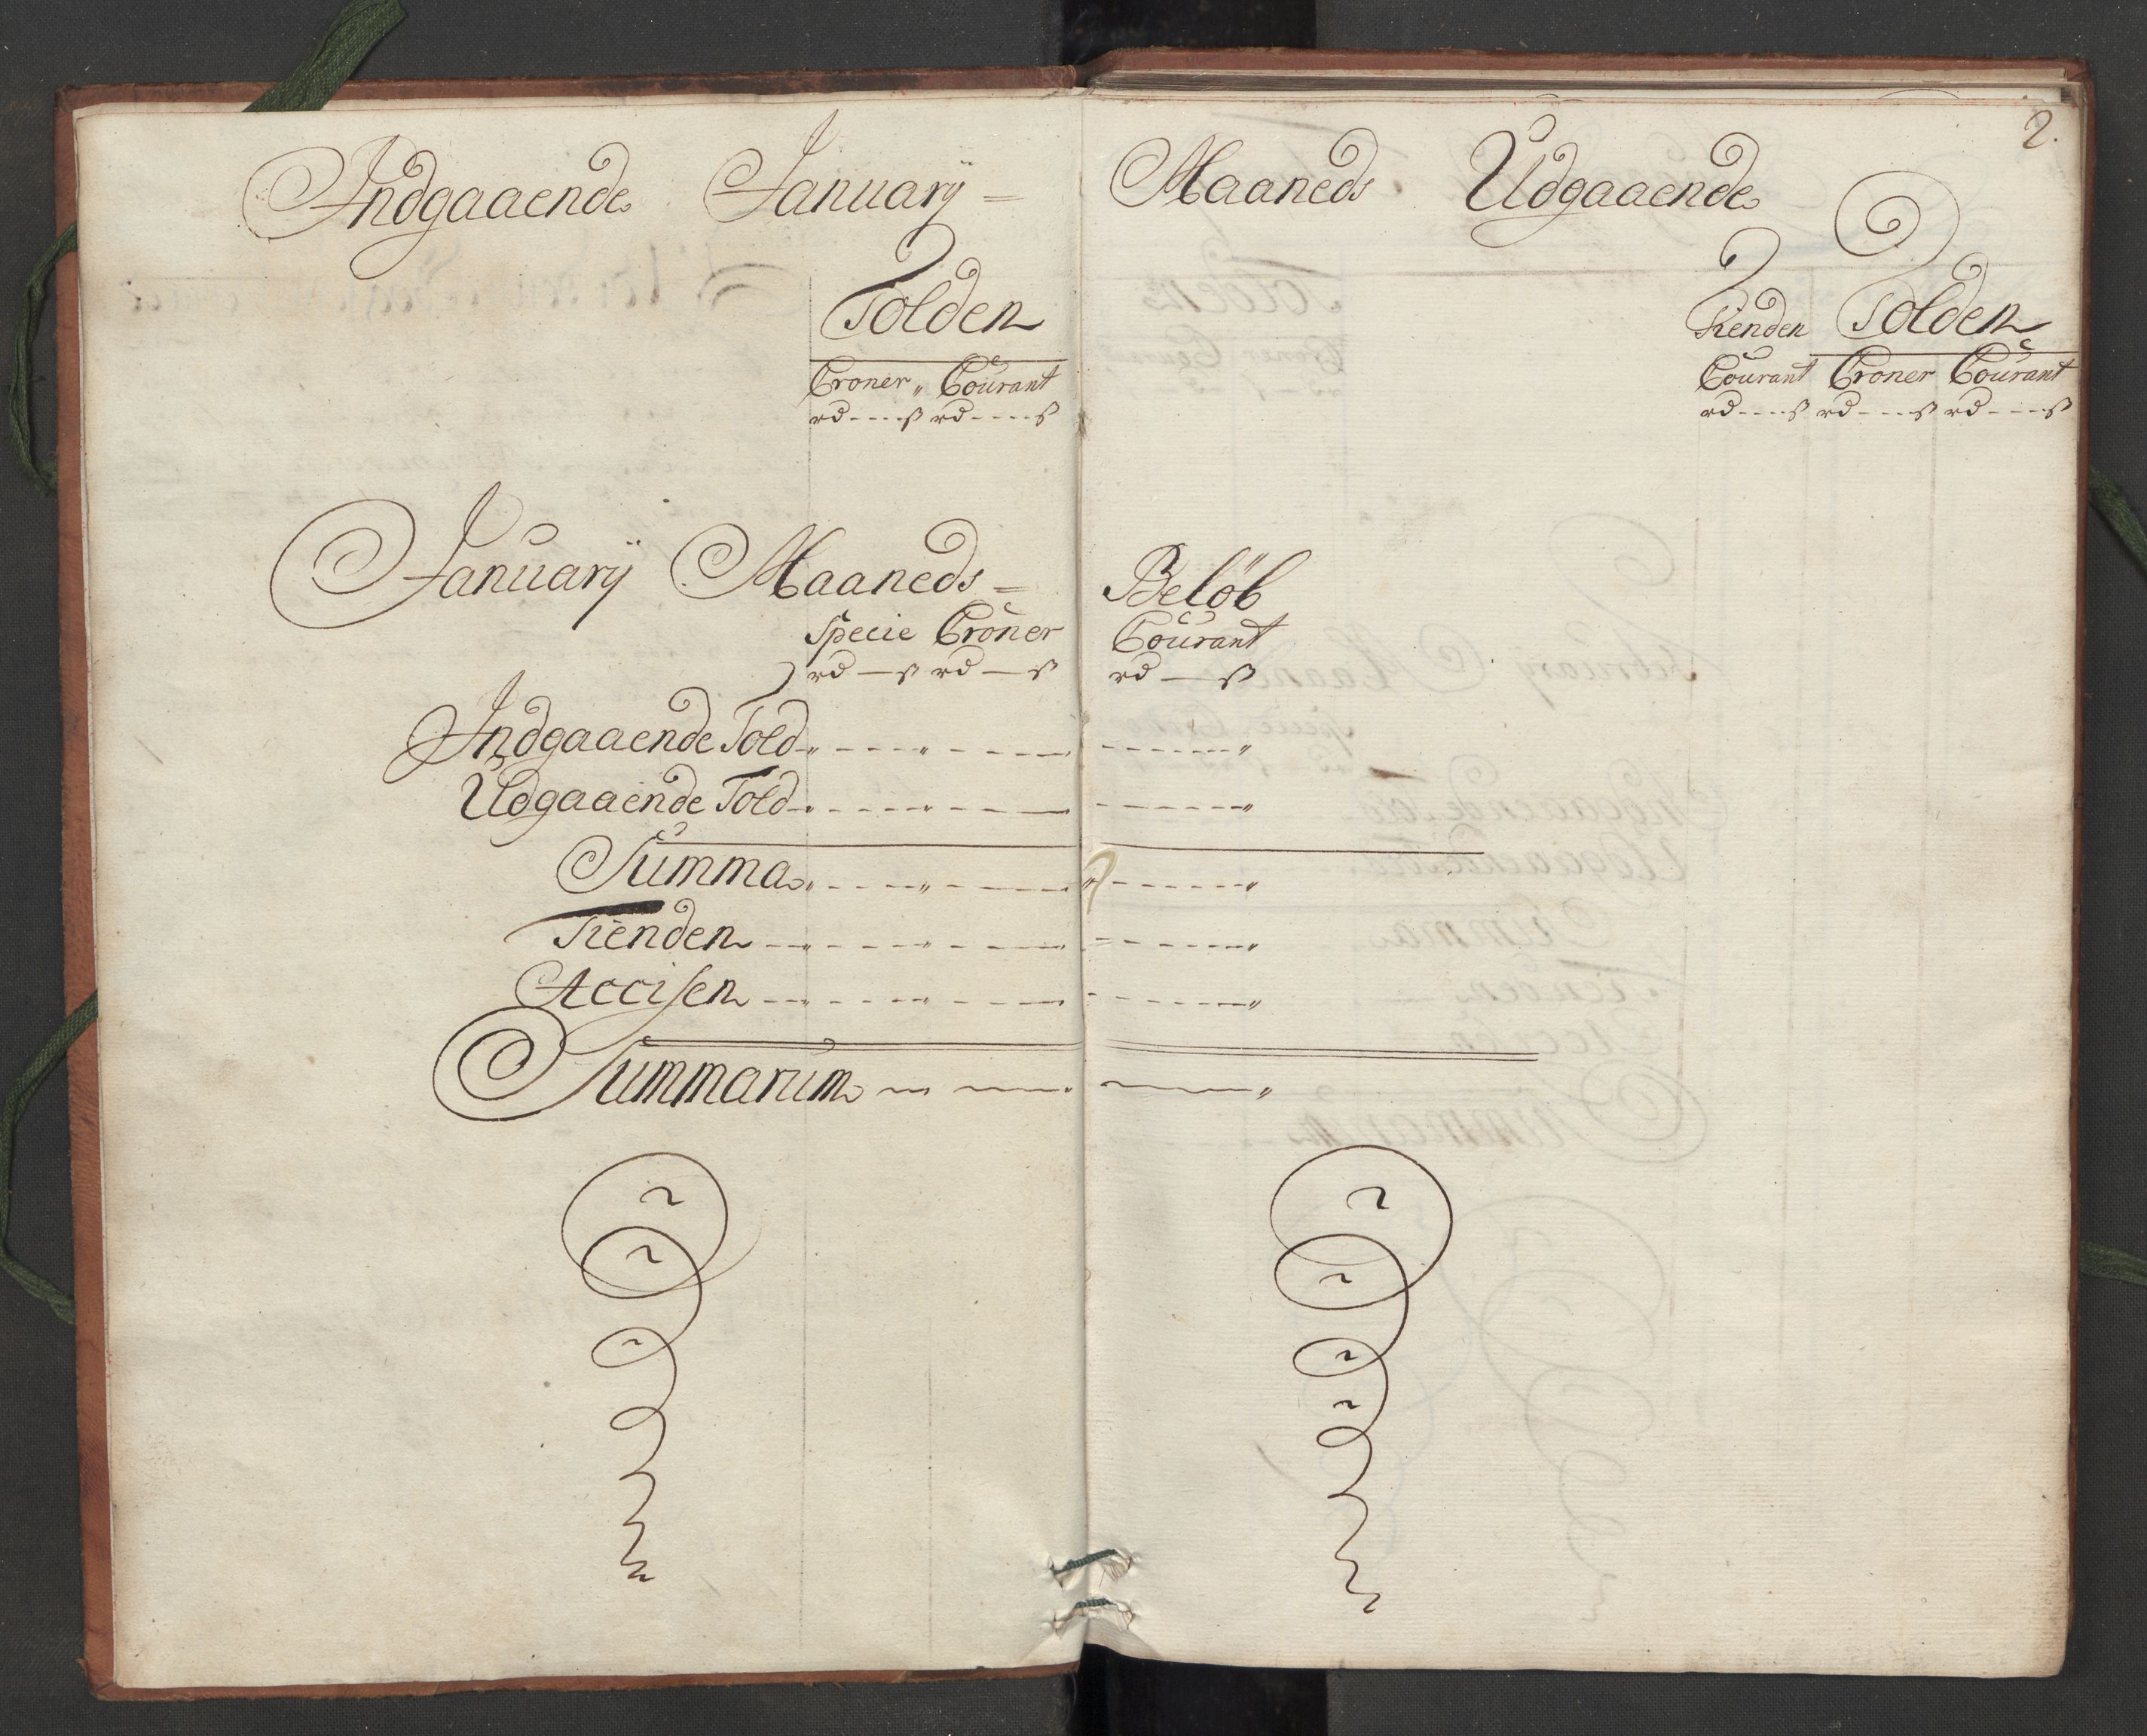 2.
Indgaaende Januarÿ = Maaneds Udgaaende
Tolden Tienden Tolden
Croner „ Courant Courant Croner Courant
rd----ß rd----ß rd----ß rd----ß rd----ß
Januarÿ Maaneds = Beløb
Specie Croner Courant
rd—ß rd—ß rd—ß
Indgaaende Told
Udgaaende Told
Summa
Tienden
Accisen
Summarum